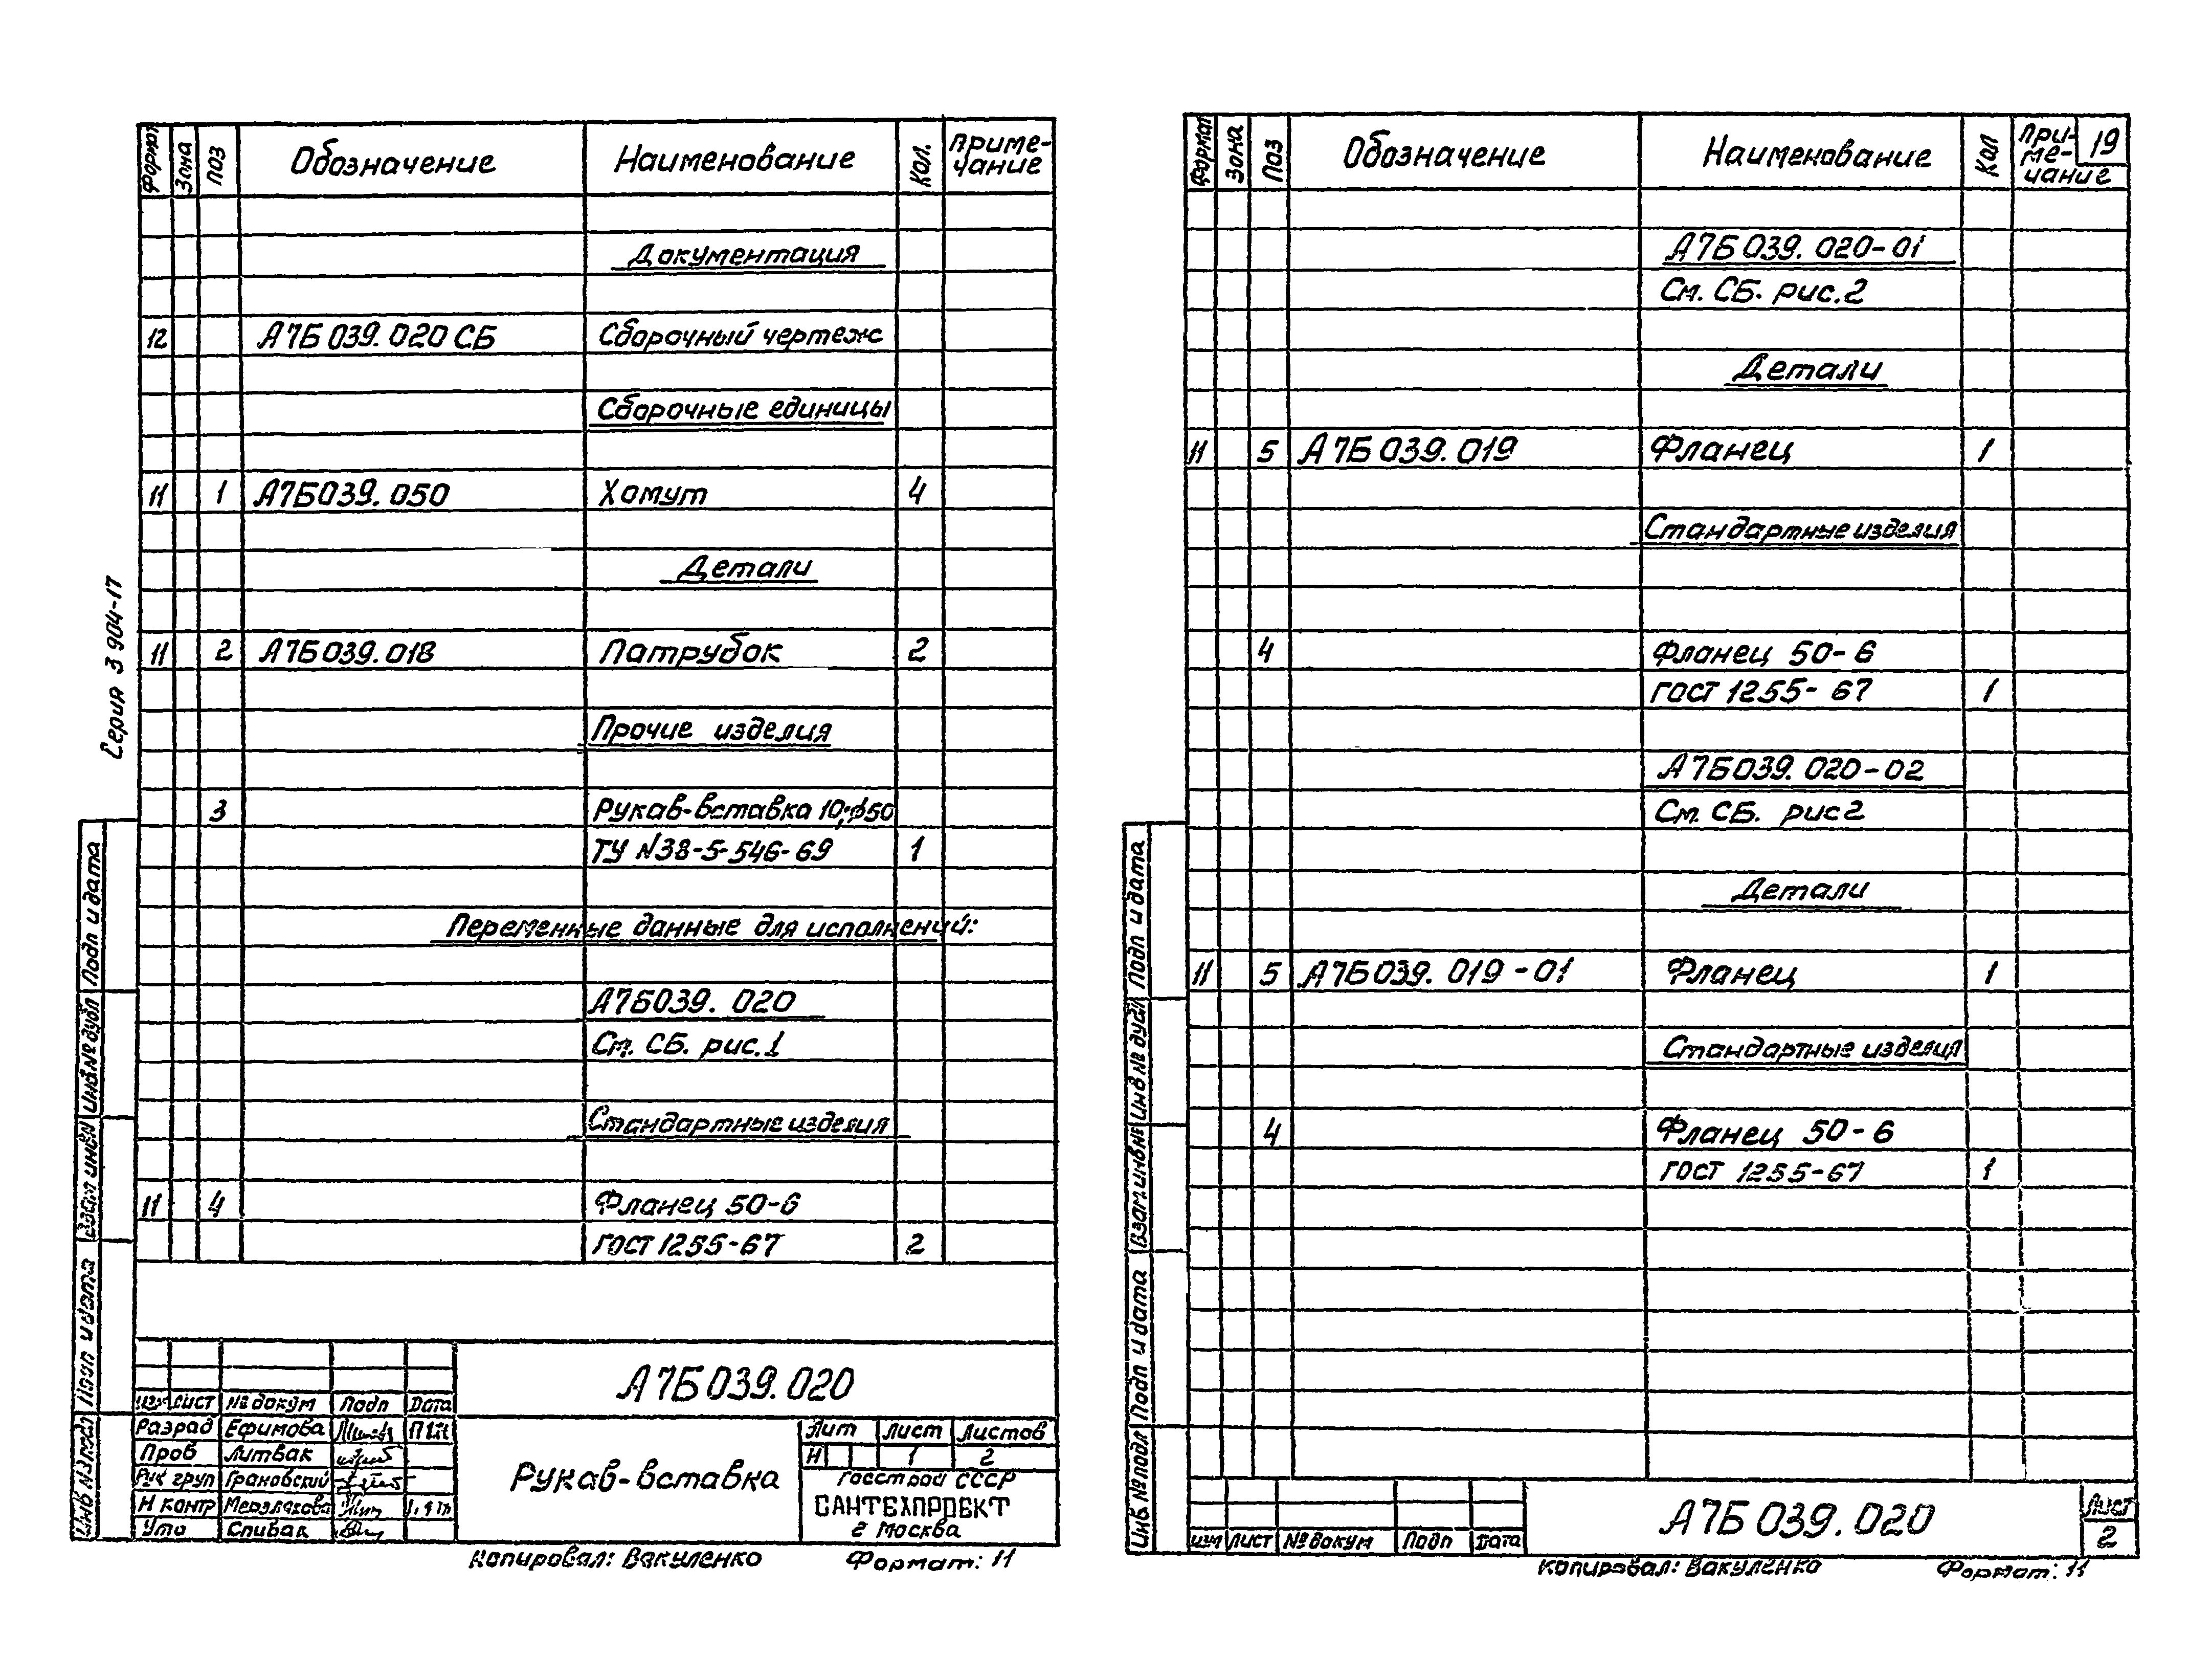 Формат Зона Поз Обозначение Наименование Кол. Приме-
чание
Документация
12 А7Б 039.020 СБ Сборочный чертеж
Сборочные единицы
11 1 А7Б039.050 Хомут 4
Детали
11 2 А7Б039.018 Патрубок 2
Прочие изделия
3 Рукав-вставка 10; ф50
ТУ N38-5-546-69 1
Переменные данные для исполнений:
А7Б039.020
См. СБ. рис.1
Стандартные изделия
11 4 Фланец 50-6
ГОСТ 1255-67 2
Серия 3 904-17
Подп и дата
Инв № дубл
Взам инв №
Подп и дата
Инв № подл
А7Б039.020
Изм Лист № докум Подп Дата
Разраб Ефимова
Пров Литвак
Рук груп Грановский
Н контр Мерзлякова
Утв Спивак
Рукав-вставка
Лит Лист Листов
И 1 2
Госстрой СССР
САНТЕХПРОЕКТ
г Москва
Копировал: Вакуленко Формат: 11
Формат Зона Поз Обозначение Наименование Кол При-
ме-
чание
19
А7Б 039.020-01
См. СБ. рис.2
Детали
11 5 А7Б 039.019 Фланец 1
Стандартные изделия
4 Фланец 50-6
ГОСТ 1255-67 1
А7Б039.020-02
См. СБ. рис 2
Детали
11 5 А7Б 039.019-01 Фланец 1
Стандартные изделия
4 Фланец 50-6
ГОСТ 1255-67 1
Подп и дата
Инв № дубл
Взам. инв №
Подп и дата
Инв № подл
Изм Лист № докум Подп Дата
А7Б 039.020
Лист
2
Копировал: Вакуленко Формат: 11